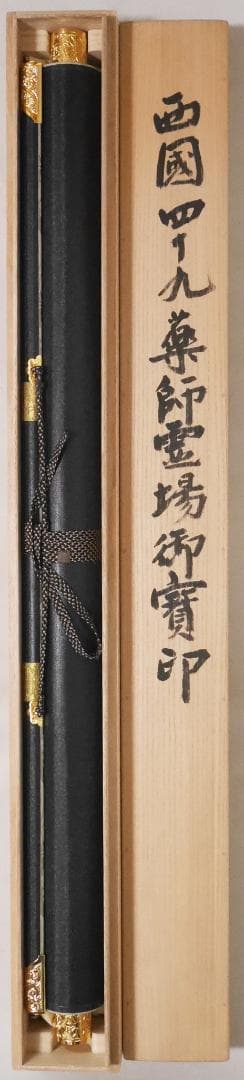 西國四十九薬師霊場御寳印